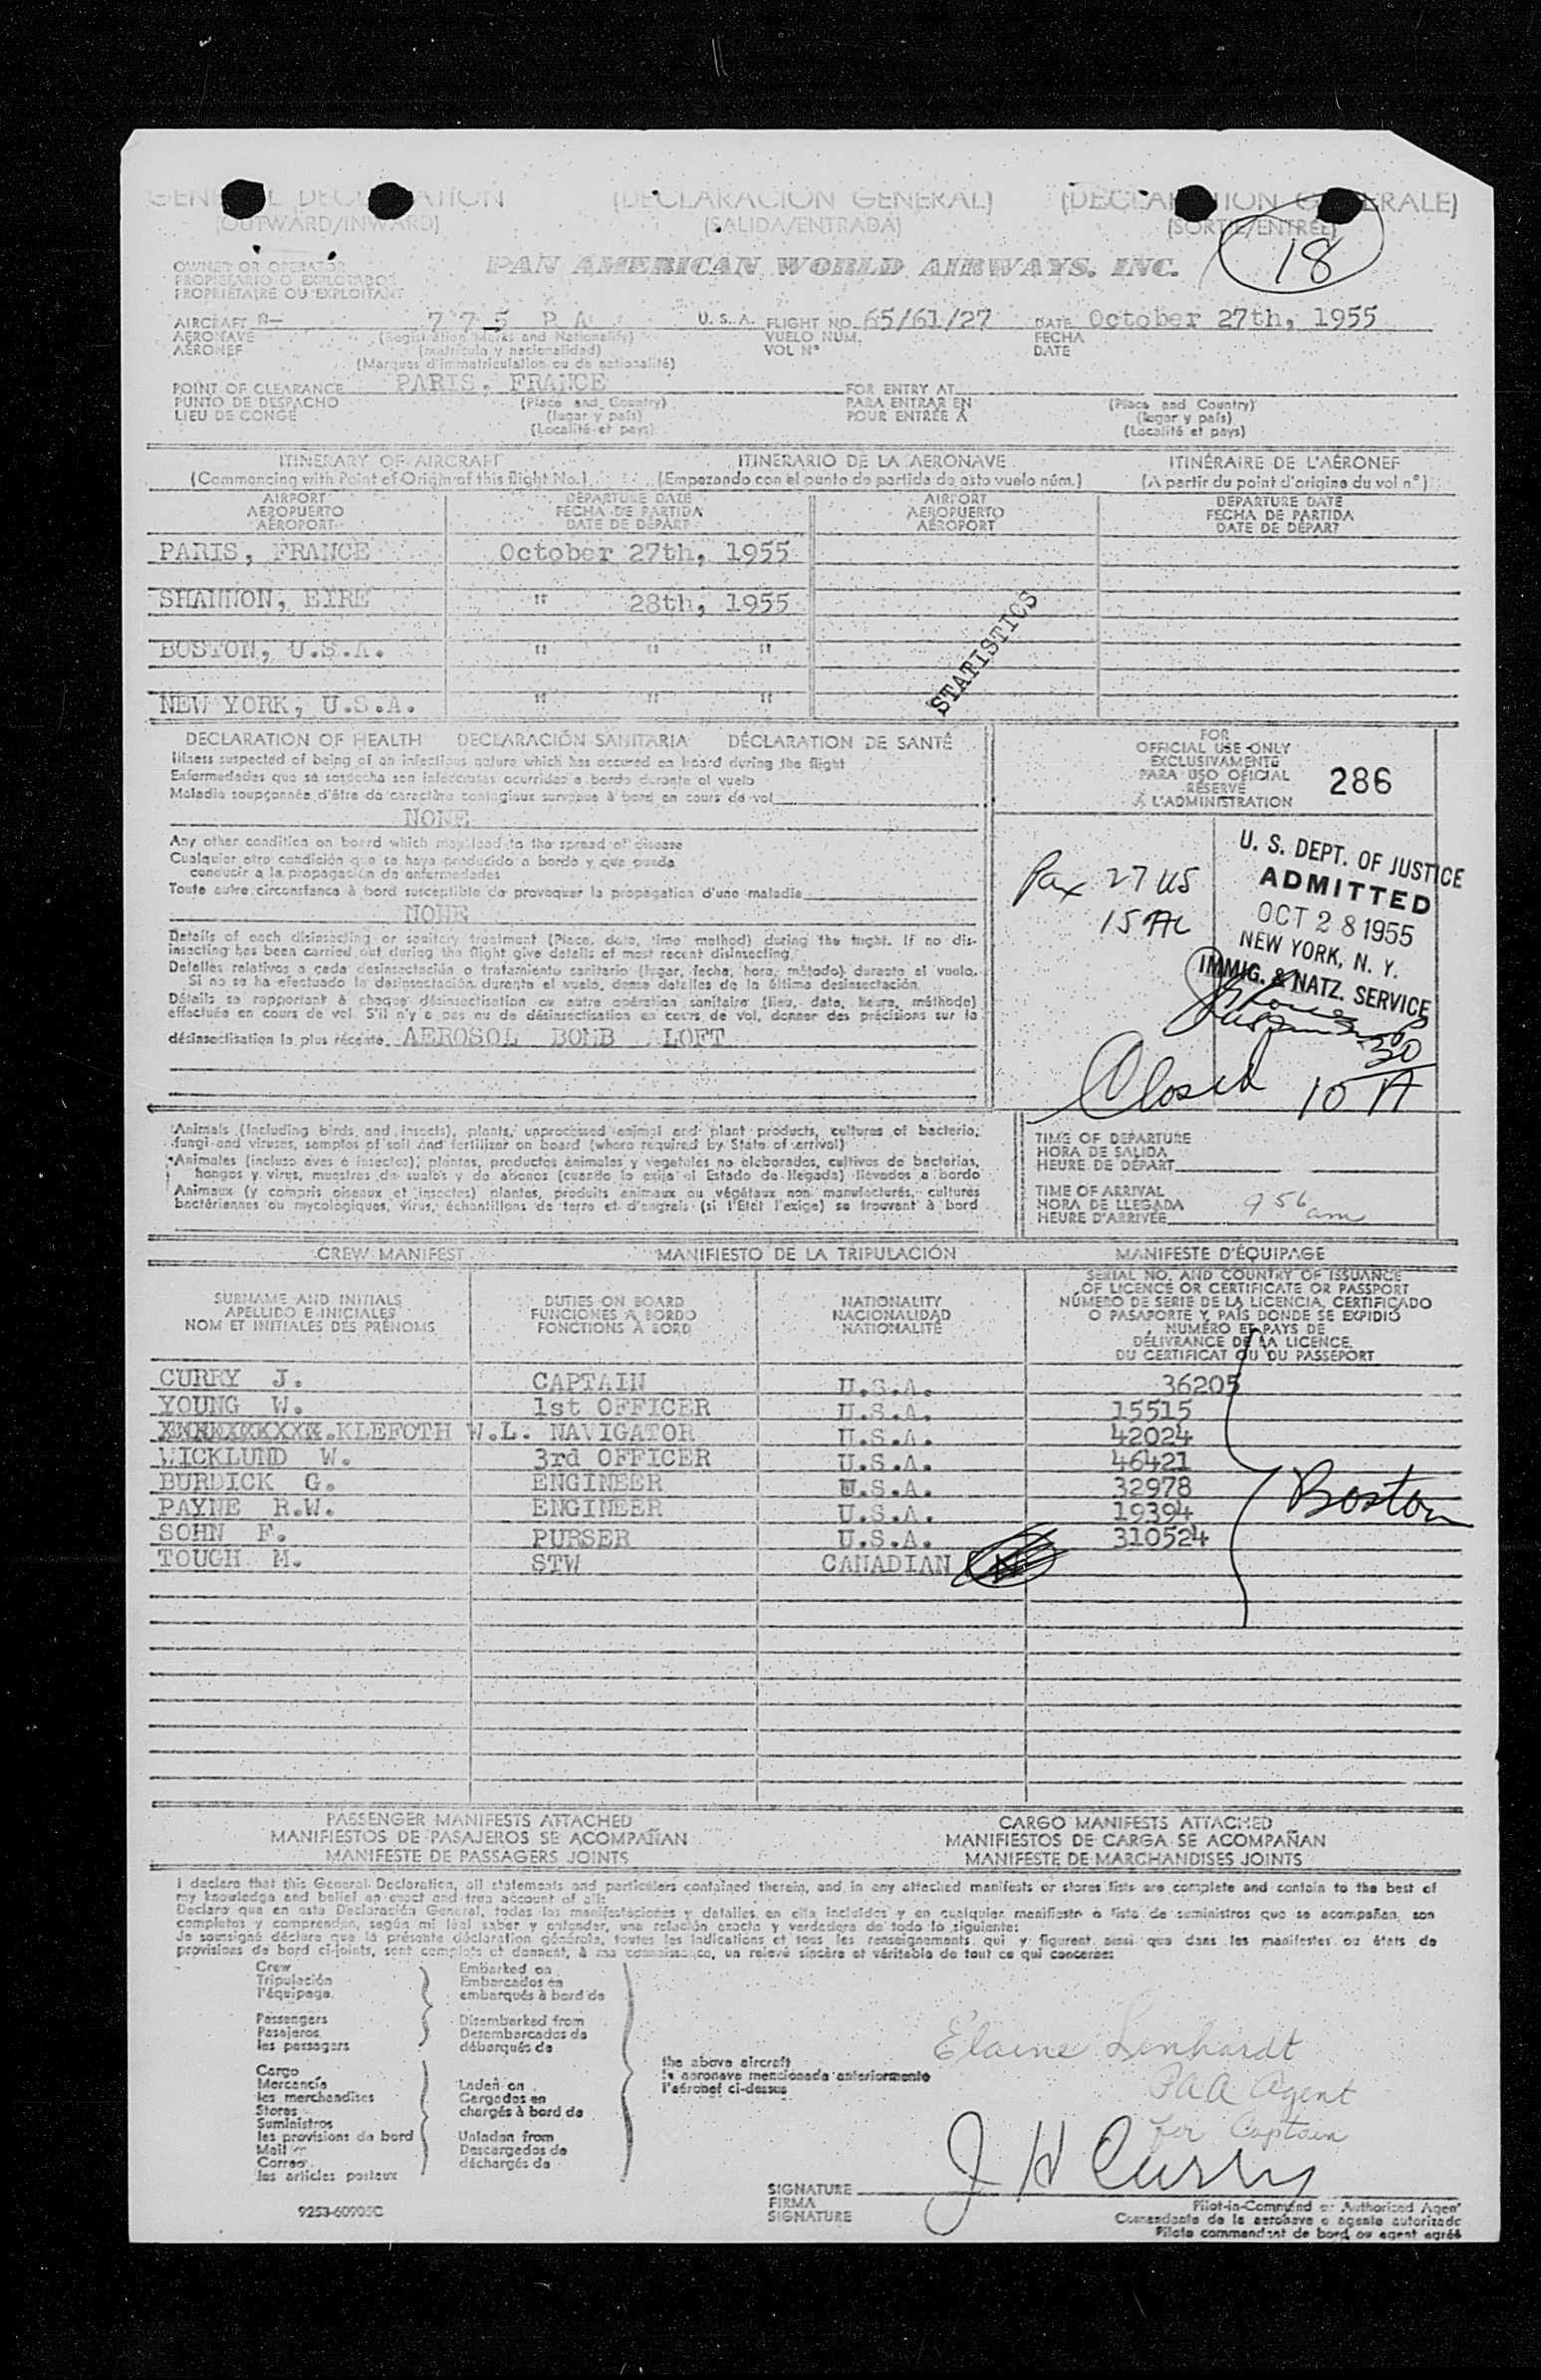 GENERAL DECLARATION (DECLARACIÓN GENERAL) (DECLARATION GENERALE)
(OUTWARD/INWARD) (SALIDA/ENTRADA) (SORTIE/ENTRÉE)
18
OWNER OR OPERATOR
PROPIETARIO O EXPLOTADOR
PROPRIÉTAIRE OU EXPLOITANT
PAN AMERICAN WORLD AIRWAYS, INC.
AIRCRAFT N— 775 PA U. S. A. FLIGHT NO. 65/61/27 DATE October 27th, 1955
AERONAVE (Registration Marks and Nationality) VUELO NÚM. FECHA
AÉRONEF (matrícula y nacionalidad) VOL N° DATE
(Marques d'immatriculation ou de nationalité)
POINT OF CLEARANCE PARIS, FRANCE FOR ENTRY AT
PUNTO DE DESPACHO (Place and Country) PARA ENTRAR EN (Place and Country)
LIEU DE CONGÉ (lugar y país) POUR ENTRÉE À (lugar y país)
(Localité et pays) (Localité et pays)
ITINERARY OF AIRCRAFT ITINERARIO DE LA AERONAVE ITINÉRAIRE DE L'AÉRONEF
(Commencing with Point of Origin of this flight No.) (Empezando con el punto de partida de este vuelo núm.) (A partir du point d'origine du vol n.°)
AIRPORT DEPARTURE DATE AIRPORT DEPARTURE DATE
AEROPUERTO FECHA DE PARTIDA AEROPUERTO FECHA DE PARTIDA
AÉROPORT DATE DE DÉPART AÉROPORT DATE DE DÉPART
PARIS, FRANCE October 27th, 1955
SHANNON, EIRE " 28th, 1955
BOSTON, U.S.A. " " "
NEW YORK, U.S.A. " " "
STATISTICS
DECLARATION OF HEALTH DECLARACIÓN SANITARIA DÉCLARATION DE SANTÉ
Illness suspected of being of an infectious nature which has occured on board during the flight
Enfermedades que se sospecha son infecciosas ocurridas a bordo durante el vuelo
Maladie soupçonnée d'être de caractère contagieux survenue à bord en cours de vol
NONE
Any other condition on board which may lead to the spread of disease
Cualquier otra condición que se haya producido a bordo y que pueda
conducir a la propagación de enfermedades
Toute autre circonstance à bord susceptible de provoquer la propagation d'une maladie
NONE
Details of each disinsecting or sanitary treatment (Place, date, time method) during the flight. If no dis-
insecting has been carried out during the flight give details of most recent disinsecting.
Detalles relativos a cada desinsectación o tratamiento sanitario (lugar, fecha, hora, método) durante el vuelo.
Si no se ha efectuado la desinsectación durante el vuelo, dense detalles de la última desinsectación.
Détails se rapportant à chaque désinsectisation ou autre opération sanitaire (lieu, date, heure, méthode)
effectuée en cours de vol. S'il n'y a pas eu de désinsectisation en cours de vol, donner des précisions sur la
désinsectisation la plus récente. AEROSOL BOMB ALOFT
FOR
OFFICIAL USE ONLY
EXCLUSIVAMENTE
PARA USO OFICIAL
RÉSERVÉ
À L'ADMINISTRATION
286
Pax 27 US
15 AL
U. S. DEPT. OF JUSTICE
ADMITTED
OCT 28 1955
NEW YORK, N. Y.
IMMIG. & NATZ. SERVICE
Closed 10 30 A
Animals (including birds and insects), plants, unprocessed animal and plant products, cultures of bacteria,
fungi and viruses, samples of soil and fertilizer on board (where required by State of arrival)
Animales (incluso aves e insectos); plantas, productos animales y vegetales no elaborados, cultivos de bacterias,
hongos y virus, muestras de suelos y de abonos (cuando lo exija el Estado de llegada) llevados a bordo
Animaux (y compris oiseaux et insectes) plantes, produits animaux ou végétaux non manufacturés, cultures
bactériennes ou mycologiques, virus, échantillons de terre et d'engrais (si l'État l'exige) se trouvant à bord
TIME OF DEPARTURE
HORA DE SALIDA
HEURE DE DÉPART
TIME OF ARRIVAL
HORA DE LLEGADA 9 56 am
HEURE D'ARRIVÉE
CREW MANIFEST MANIFIESTO DE LA TRIPULACIÓN MANIFESTE D'ÉQUIPAGE
SURNAME AND INITIALS
APELLIDO E INICIALES
NOM ET INITIALES DES PRÉNOMS
DUTIES ON BOARD
FUNCIONES A BORDO
FONCTIONS À BORD
NATIONALITY
NACIONALIDAD
NATIONALITÉ
SERIAL NO. AND COUNTRY OF ISSUANCE
OF LICENCE OR CERTIFICATE OR PASSPORT
NÚMERO DE SERIE DE LA LICENCIA, CERTIFICADO
O PASAPORTE Y PAÍS DONDE SE EXPIDIÓ
NUMÉRO ET PAYS DE
DÉLIVRANCE DE LA LICENCE
DU CERTIFICAT OU DU PASSEPORT
CURRY J. CAPTAIN U.S.A. 36205
YOUNG W. 1st OFFICER U.S.A. 15515
KLEFOTH W.L. NAVIGATOR U.S.A. 42024
WICKLUND W. 3rd OFFICER U.S.A. 46421
BURDICK G. ENGINEER U.S.A. 32978
PAYNE R.W. ENGINEER U.S.A. 19394
SOHN F. PURSER U.S.A. 310524
TOUGH M. STW CANADIAN
Boston
PASSENGER MANIFESTS ATTACHED CARGO MANIFESTS ATTACHED
MANIFIESTOS DE PASAJEROS SE ACOMPAÑAN MANIFIESTOS DE CARGA SE ACOMPAÑAN
MANIFESTE DE PASSAGERS JOINTS MANIFESTE DE MARCHANDISES JOINTS
I declare that this General Declaration, all statements and particulars contained therein, and in any attached manifests or stores lists are complete and contain to the best of
my knowledge and belief an exact and true account of all:
Declaro que en esta Declaración General, todas las manifestaciones y detalles en ella incluídos y en cualquier manifiesto o lista de suministros que se acompañan, son
completos y comprenden, según mi leal saber y entender, una relación exacta y verdadera de todo lo siguiente:
Je soussigné déclare que la présente déclaration générale, toutes les indications et tous les renseignements qui y figurent ainsi que dans les manifestes ou états de
provisions de bord ci-joints, sont complets et donnent, à ma connaissance, un relevé sincère et véritable de tout ce qui concerne:
Crew
Tripulación
l'équipage
Passengers
Pasajeros
les passagers
Cargo
Mercancía
les marchandises
Stores
Suministros
les provisions de bord
Mail
Correo
les articles postaux
Embarked on
Embarcados en
embarqués à bord de
Disembarked from
Desembarcados de
débarqués de
Laden on
Cargados en
chargés à bord de
Unladen from
Descargados de
déchargés de
the above aircraft
la aeronave mencionada anteriormente
l'aéronef ci-dessus
Elaine Lenhardt
PAA Agent
for Captain
J H Curry
SIGNATURE
FIRMA
SIGNATURE
Pilot-in-Command or Authorized Agent
Comandante de la aeronave o agente autorizado
Pilote commandant de bord ou agent agréé
9253-60905C